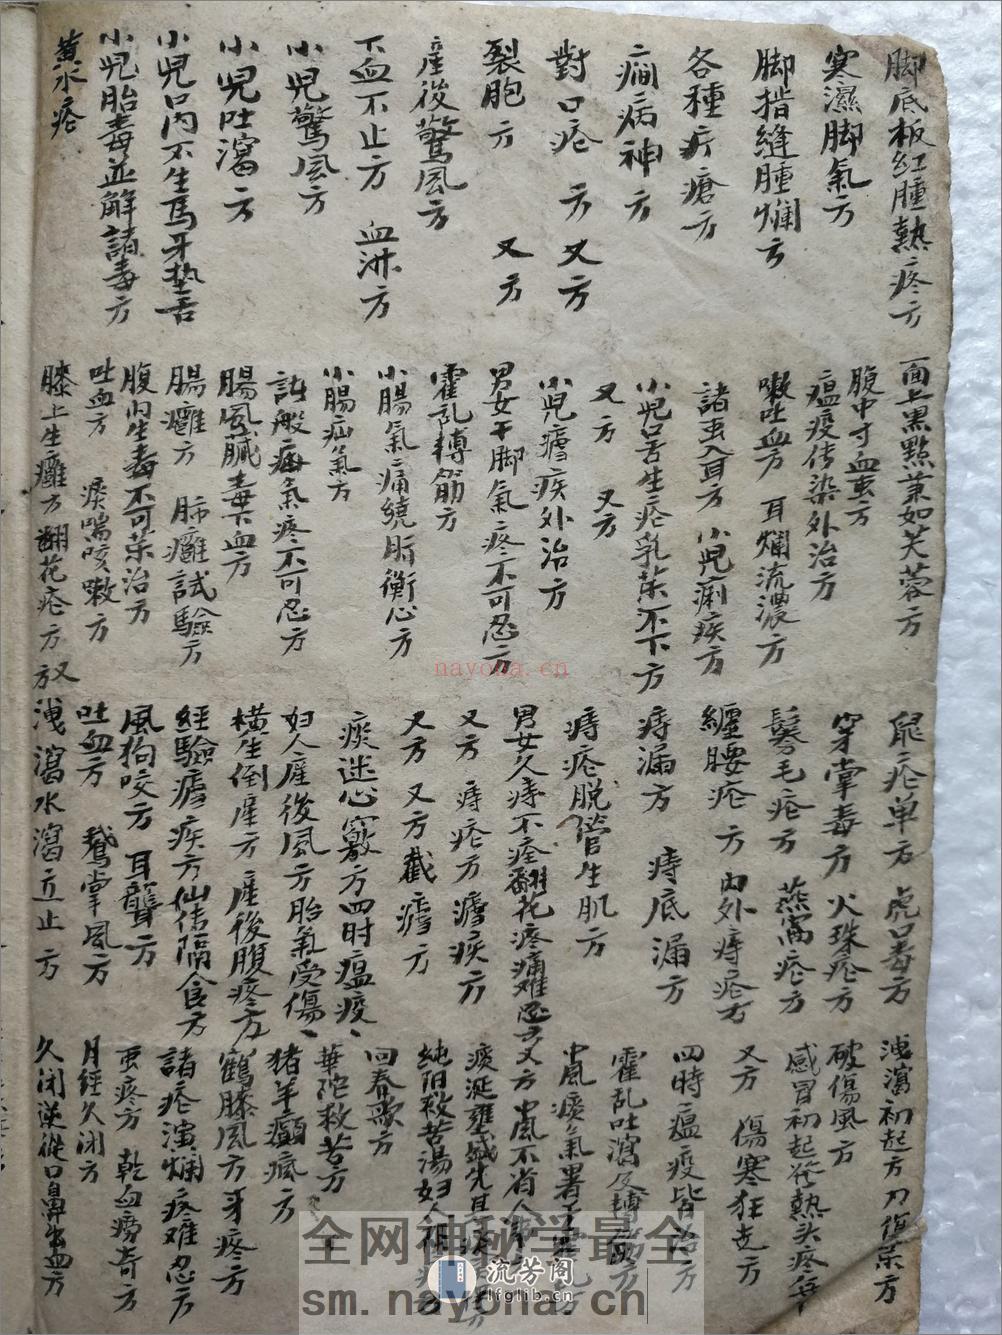 脚底板红腫熱疼方
寒濕脚氣方
脚指縫腫爛方
各種疔瘡方
癎病神方
對口疮方 又方
裂胞方 又方
産後驚風方
下血不止方 血淋方
小児驚風方
小児吐瀉方
小児口内不生馬牙垫舌
小児胎毒並解諸毒方
黄水疮
面上黒點菓如芙蓉方
腹中寸血虫方
瘟疫传染外治方
嗽吐血方 耳爛流濃方
諸虫入耳方 小児痢疾方
小児口舌生疮乳菓不下方
又方 又方
小児瘧疾外治方
男女干脚氣疼不可忍方
霍乱轉筋方
小腸氣痛繞脐衝心方
小腸疝氣方
諸般疝氣疼不可忍方
腸風臟毒下血方
腸癰方 肺癰試驗方
腹内生毒不可菓治方
吐血方 痰喘咳嗽方
膝上生癰方 翻花疮方
鼠疮单方 虎口毒方
穿掌毒方 火珠疮方
鬓毛疮方 燕窩疮方
纏腰疮方 内外痔疮方
痔漏方 痔底漏方
痔疮脱管生肌方
男女久痔不痊翻花疼痛难忍方
又方 痔疮方 瘧疾方
又方 又方 截瘧方
痰迷心竅方 四时瘟疫、
妇人産後風方 胎氣受傷、
横生倒産方 産後腹疼方
經驗瘧疾方 仙传隔食方
風狗咬方 耳聾方
吐血方 鵝掌風方
放洩瀉水瀉立止方
洩瀉初起方 刀傷菓方
破傷風方
感冒初起發熱头疼
又方 傷寒狂走方
四時瘟疫皆治方
霍乱吐瀉及轉筋方
中風痰氣暑
又方 中風不省人事
痰涎壅盛
纯阳救苦湯妇人
回春散方
華陀救苦方
猪羊癲瘋方
鶴膝風方 牙疼方
諸疮潰爛疼难忍方
虫疼方 乾血痨奇方
月經久闭方
久闭逆從口鼻出血方
全网神秘学最全
sm.nayona.cn
nayona.cn
流芳阁
lfglib.com